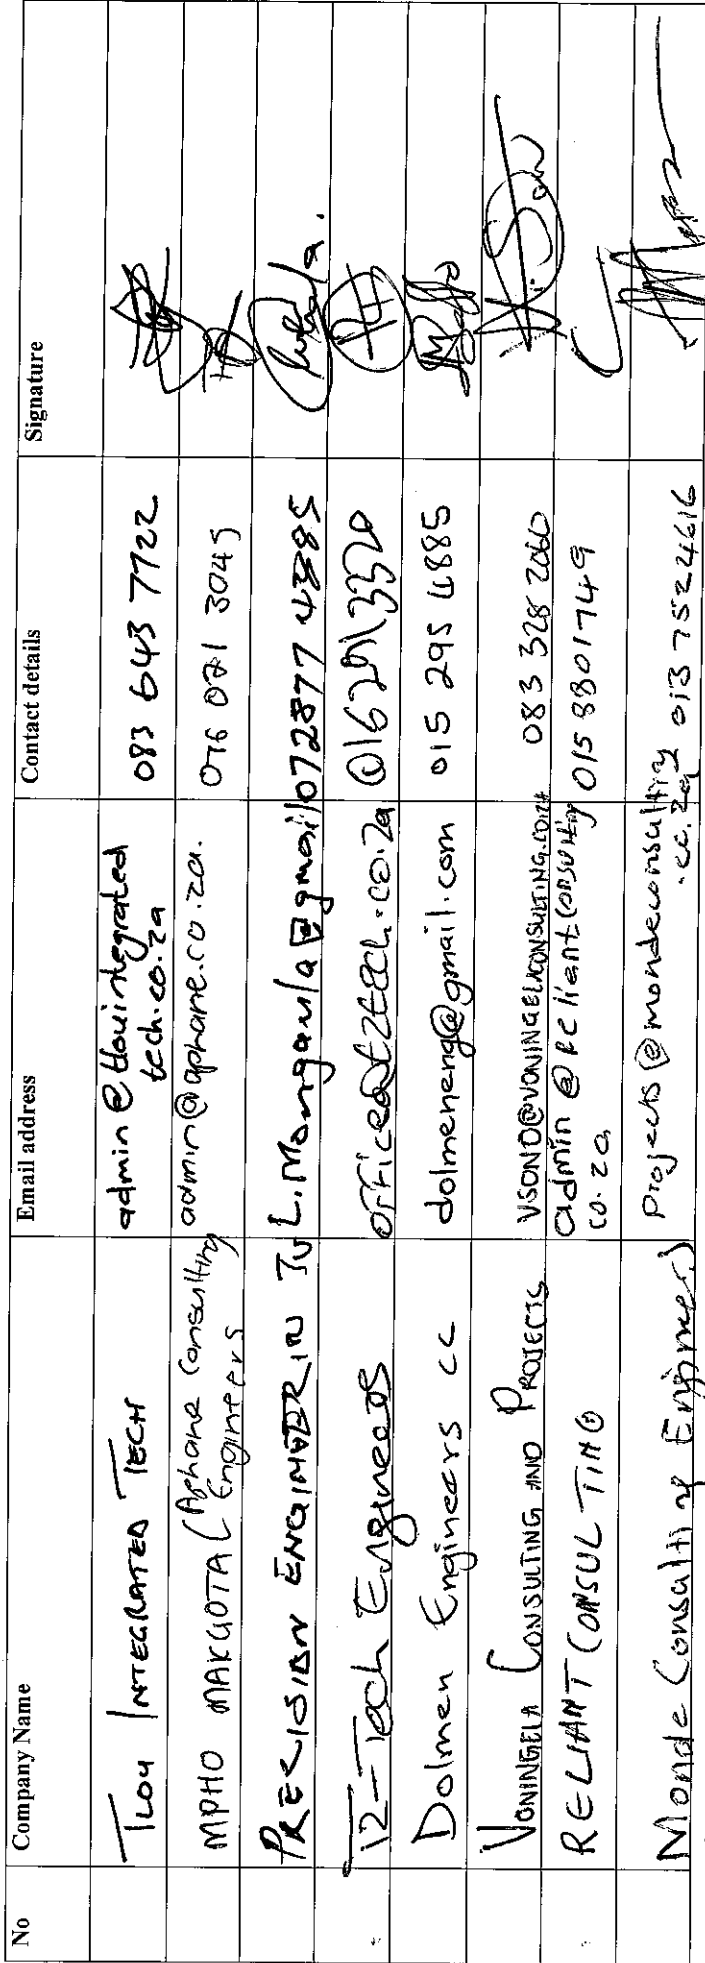 No Company Name Email address Contact details Signature
TLOU INTEGRATED TECH admin@tlouintegrated
tech.co.za 083 643 7722
MPHO MAKGOTA (Aphane Consulting
Engineers admin@aphane.co.za. 076 021 3045
PRECISION ENGINEERIN L.Mongaula@gmail 072877 4385
T2-Tech Engineers office@t2tech.co.za 0152913320
Dolmen Engineers cc dolmeneng@gmail.com 015 295 4885
VONINGELA CONSULTING AND PROJECTS VSOND@VONINGELACONSULTING.CO.ZA 083 328 2060
RELIANT CONSULTING admin@reliantconsulting
co.za 015 8801749
Monde Consulting Engineers Projects@mondeconsulting
.co.za 013 752 4616